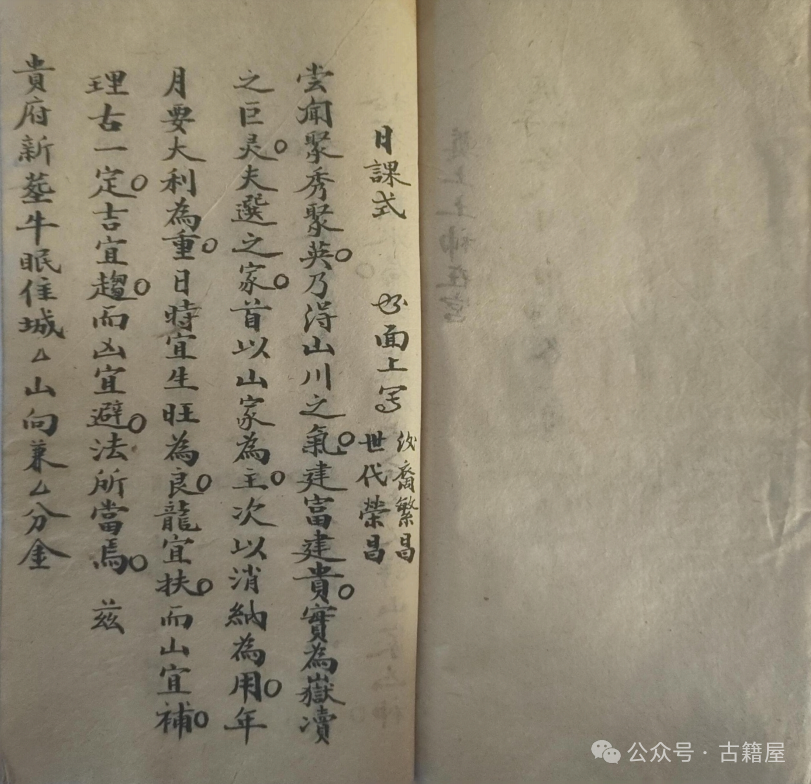 日課式 面上写 後裔繁昌
世代榮昌
尝闻聚秀聚英○乃淂山川之氣○建富建貴○實為嶽瀆
之巨灵○夫選之家○首以山家為主○次以消納為用○年
月要大利為重○日時宜生旺為良○龍宜扶○而山宜補○
理古一定○吉宜趨○而凶宜避○法所當焉○ 茲
貴府新塋牛眠佳城厶山向兼厶分金
公众号·古籍屋